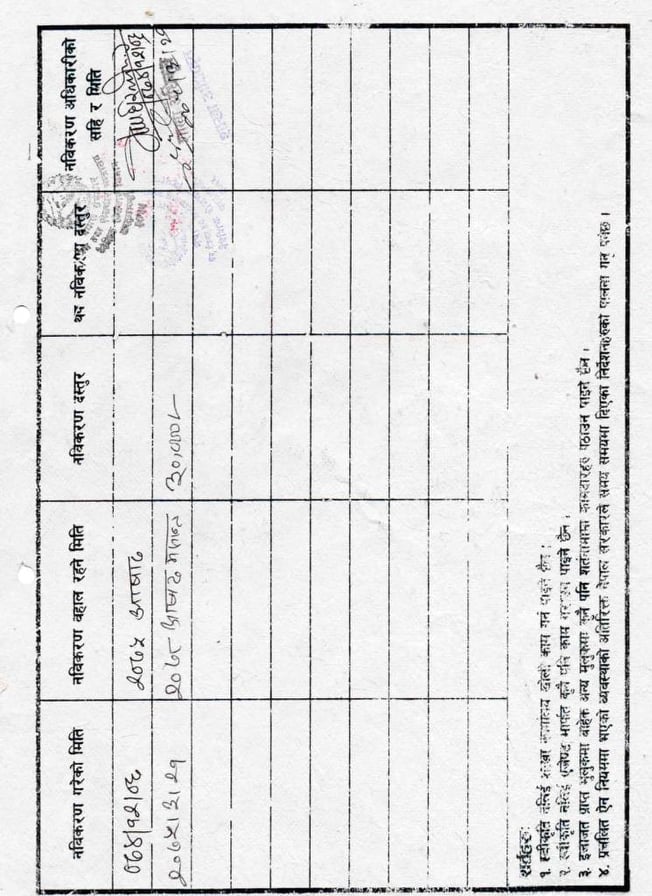 नविकरण गरेको मिति
नविकरण वहाल रहने मिति
नविकरण दस्तुर
थप नविकरण दस्तुर
नविकरण अधिकारीको
सहि र मिति
०६४/१२/०६
२०७५ आषाढ
०६४/१२/०६
२०७५/३/२१
२०७८ आषाढ मसान्त
३०,०००/-
शर्तहरुः
१. स्वीकृति नलिई शाखा कार्यालय खोली काम गर्न पाइने छैन ।
२. स्वीकृति नलिई एजेण्ट मार्फत कुनै पनि काम गराउन पाइने छैन ।
३. इजाजत प्राप्त मुलुकमा बाहेक अन्य मुलुकमा कुनै पनि शर्तनामामा कामदारहरु पठाउन पाइने छैन ।
४. प्रचलित ऐन नियममा भएको व्यवस्थाको अतिरिक्त नेपाल सरकारले समय समयमा दिएका निर्देशनहरुको पालना गर्नु पर्नेछ ।